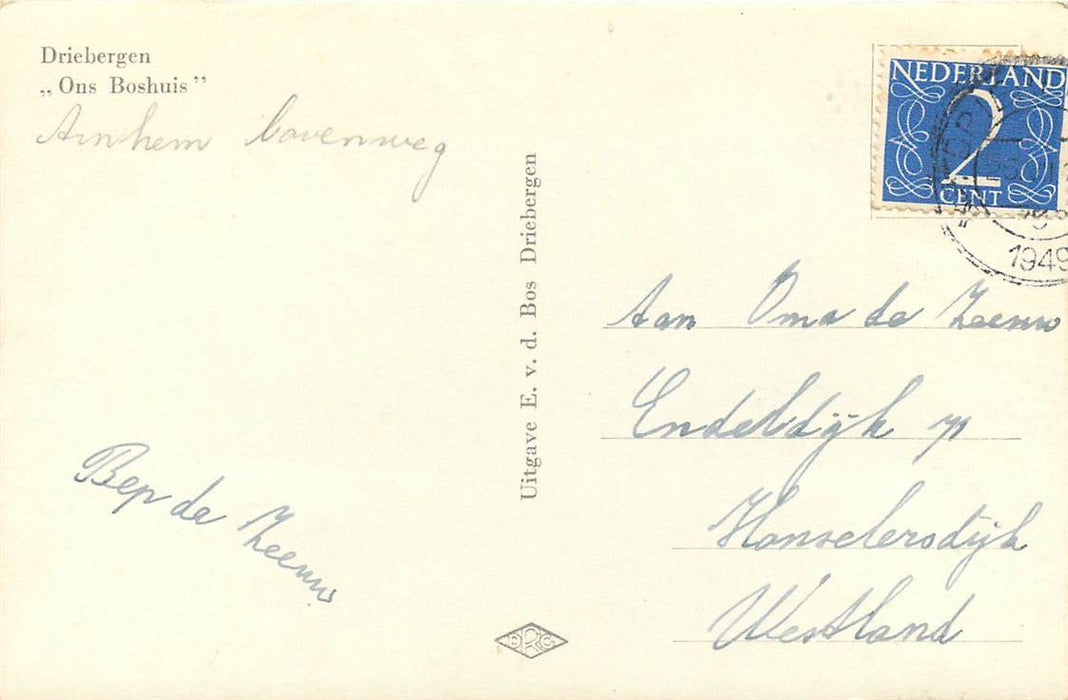 Driebergen
„Ons Boshuis”
Arnhem bovenweg
Bep de Zeeuw
Uitgave E. v. d. Bos Driebergen
NEDERLAND
2
CENT
1949
Aan Oma de Zeeuw
Endeldijk
Honselersdijk
Westland